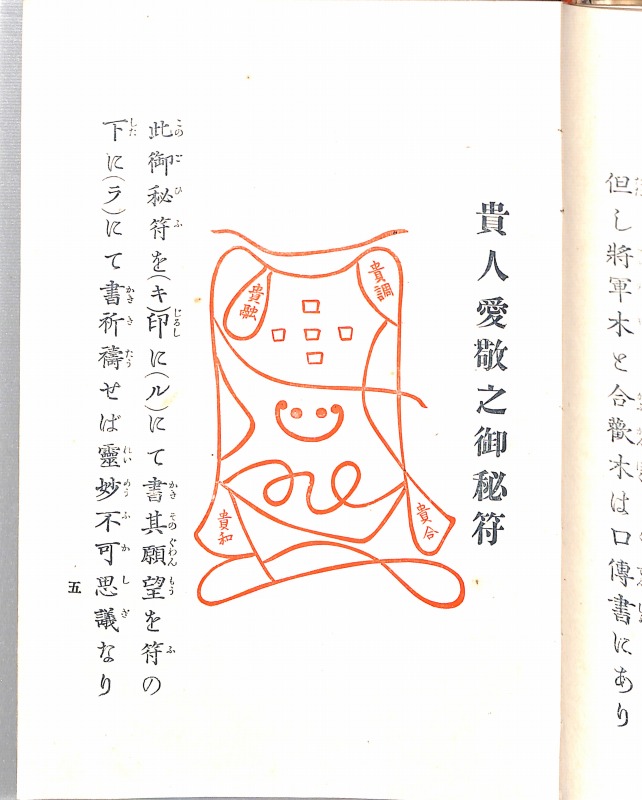 但し將軍木と合歡木は口傳書にあり
貴人愛敬之御秘符
貴調
貴融
貴合
貴和
此御秘符を(キ)印に(ル)にて書其願望を符の
下に(ラ)にて書祈禱せば靈妙不可思議なり
五